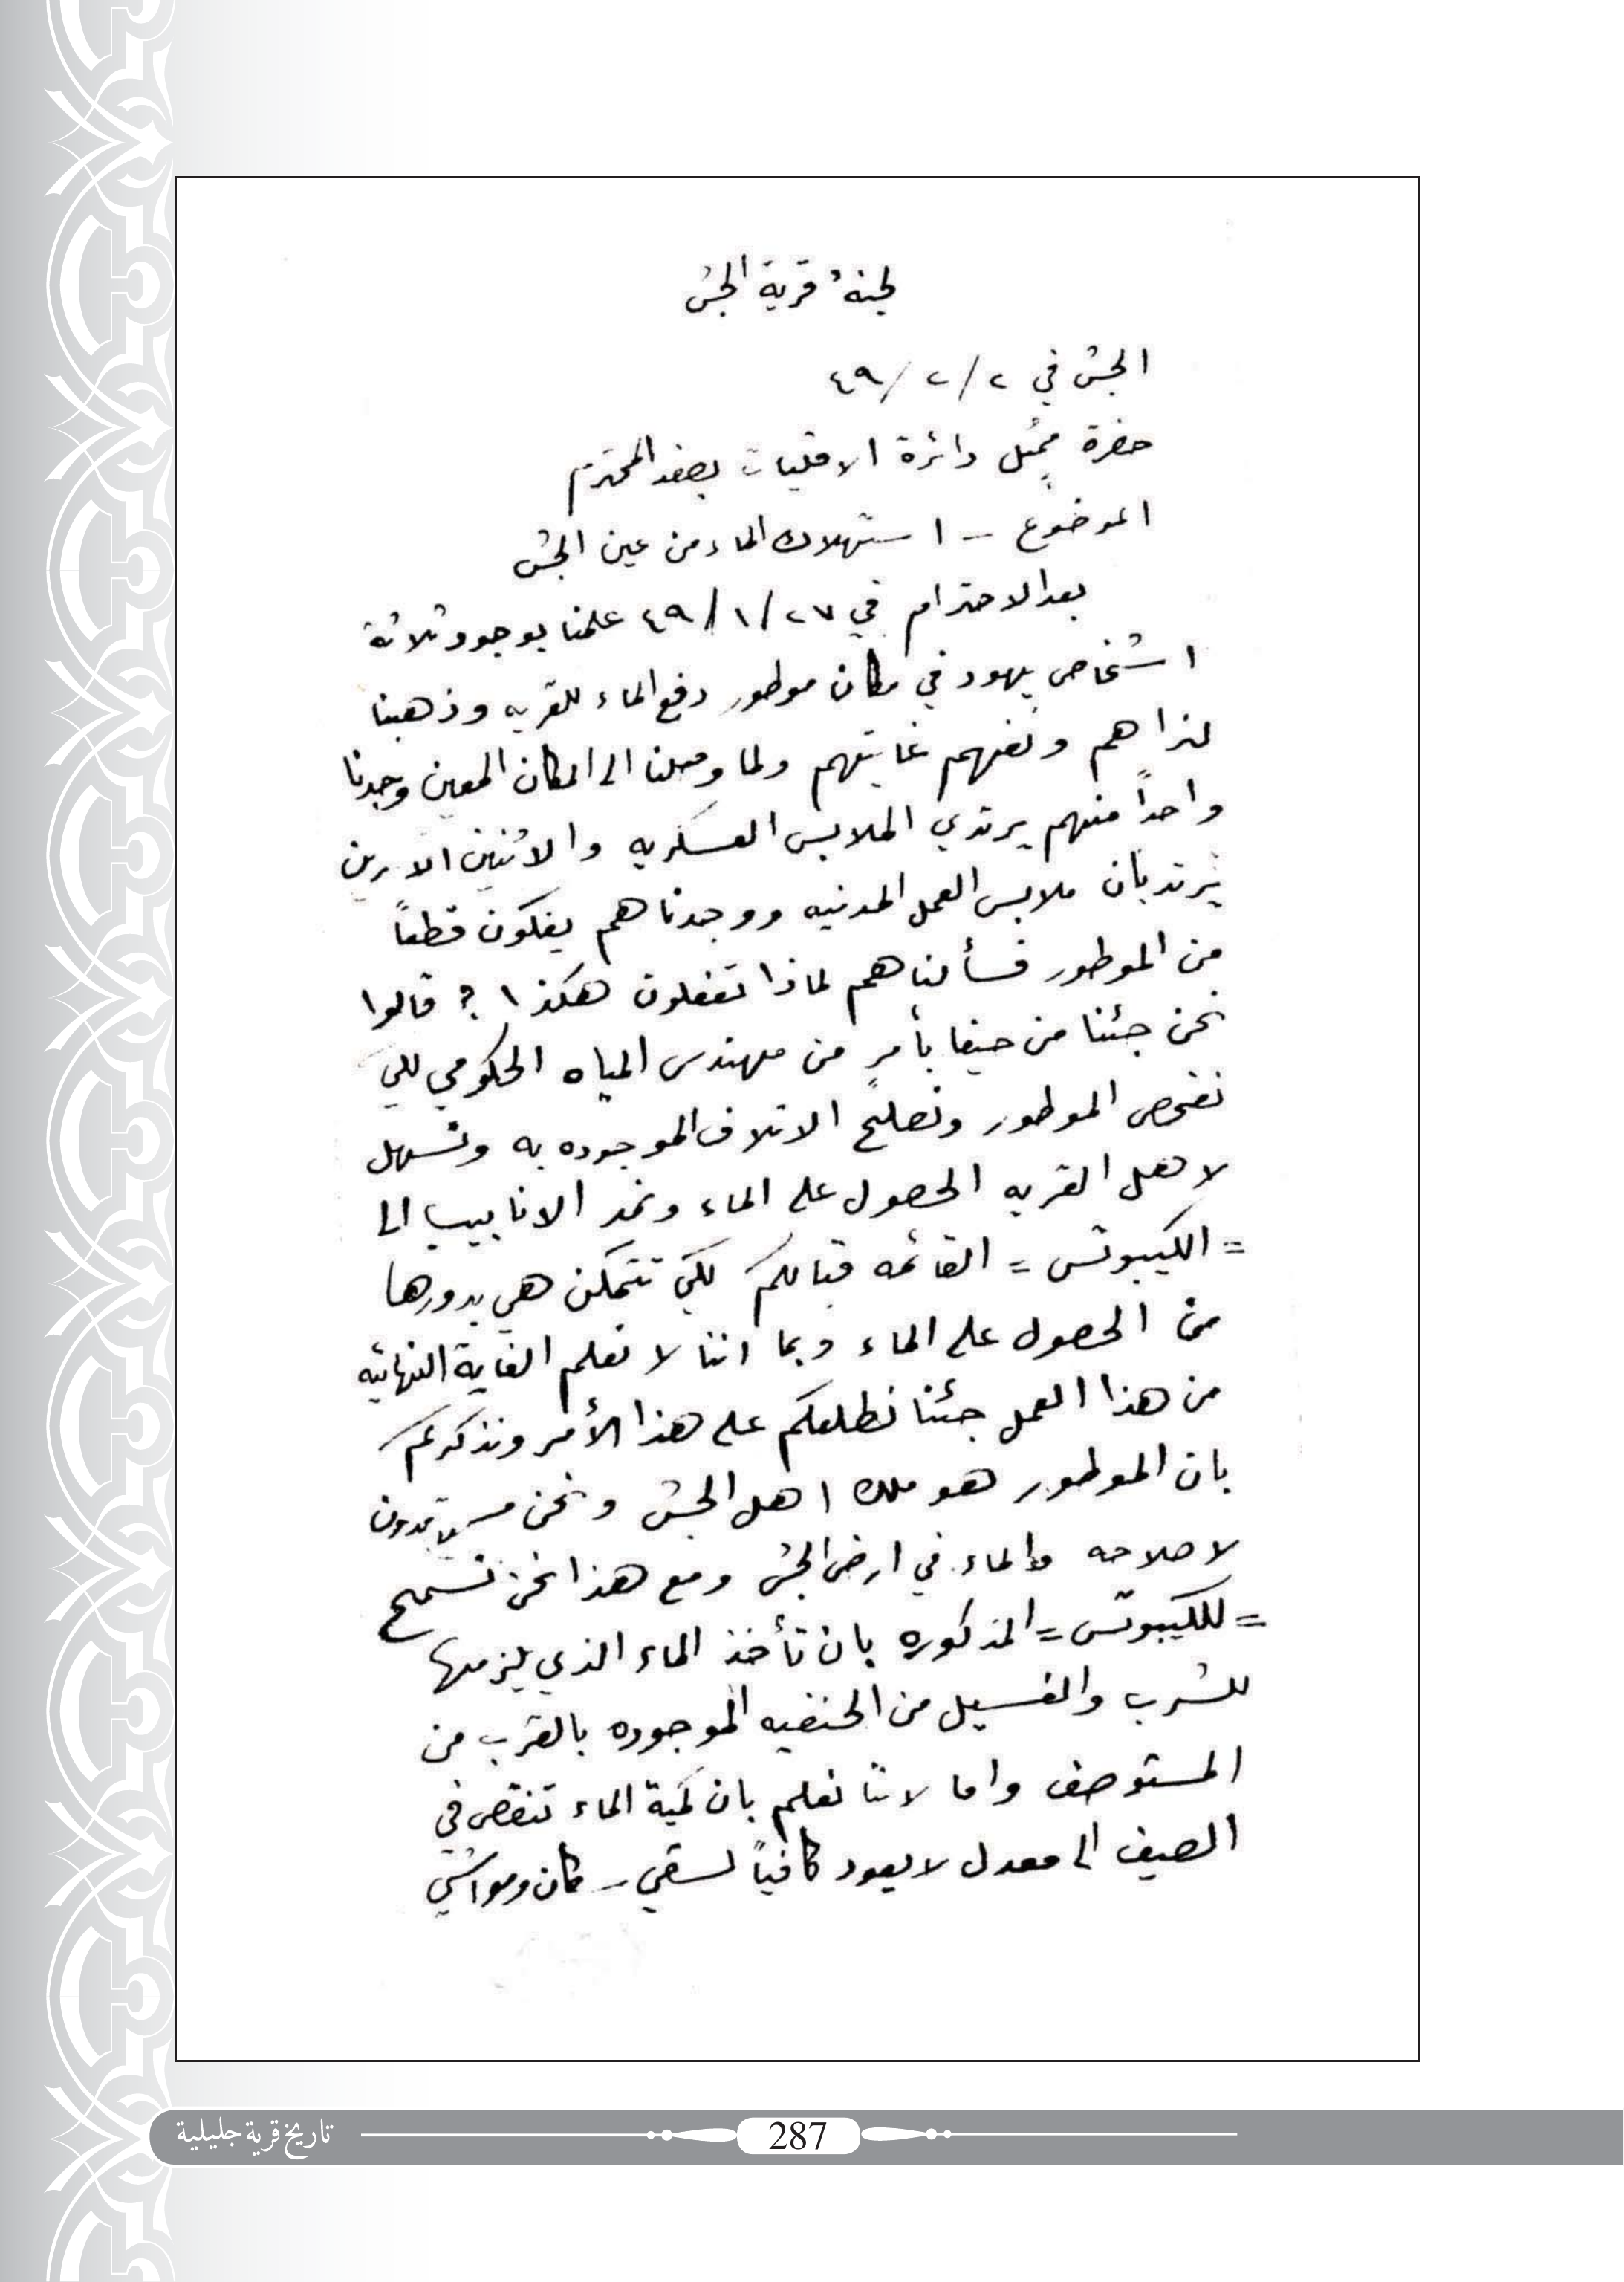 لجنة قرية الجش
الجش في ٢/٢/٤٩
حضرة ممثل دائرة الاقليات بصفد المحترم
الموضوع - استهلاك الماء من عين الجش
بعد الاحترام في ٢٧/١/٤٩ علمنا بوجود ثلاثة
اشخاص يهود في مكان موطور دفع الماء للقريه وذهبنا
لنراهم ونفهم غايتهم ولما وصلنا الى المكان المعين وجدنا
واحداً منهم يرتدي الملابس العسكريه والاثنين الاّرين
يرتديان ملابس العمل المدنيه ووجدناهم يفكون قطعاً
من الموطور فسألناهم لماذا تفعلون هكذا ؟ قالوا
نحن جئنا من حيفا بأمرٍ من مهندس المياه الحكومي لكي
نفحص الموطور ونصلح الاتلاف الموجوده به ونسهل
لاهل القريه الحصول على الماء ونمد الانابيب الى
= الكيبوتس = القائمه قبالكم لكي تتمكن هي بدورها
من الحصول على الماء وبما اننا لا نعلم الغاية النهائيه
من هذا العمل جئنا نطلعكم على هذا الأمر ونذكركم
بان الموطور هو ملك اهل الجش ونحن مستعدون
لاصلاحه والماء في ارض الجش ومع هذا نحن نسمح
= للكيبوتس = المذكوره بان تأخذ الماء الذي يلزمها
للشرب والغسيل من الحنفيه الموجوده بالقرب من
المستوصف واما لاننا نعلم بان كمية الماء تنقص في
الصيف الى معدل لا يعود كافياً لسقي سكان ومواشي
287
تاريخ قرية جليلية